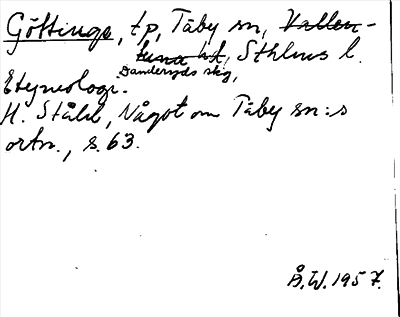 Göttinge, tp, Täby sn, Vallen-
tuna hd, Sthlms l.
Danderyds skg,
Etymologi.
H. Ståhl, Något om Täby sn:s
ortn., s. 63.
Å.W. 1957.